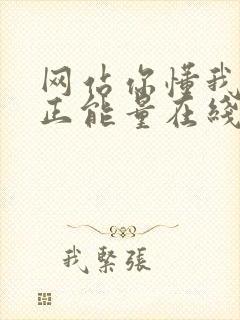 网站你懂我
正能量在线
我紧张